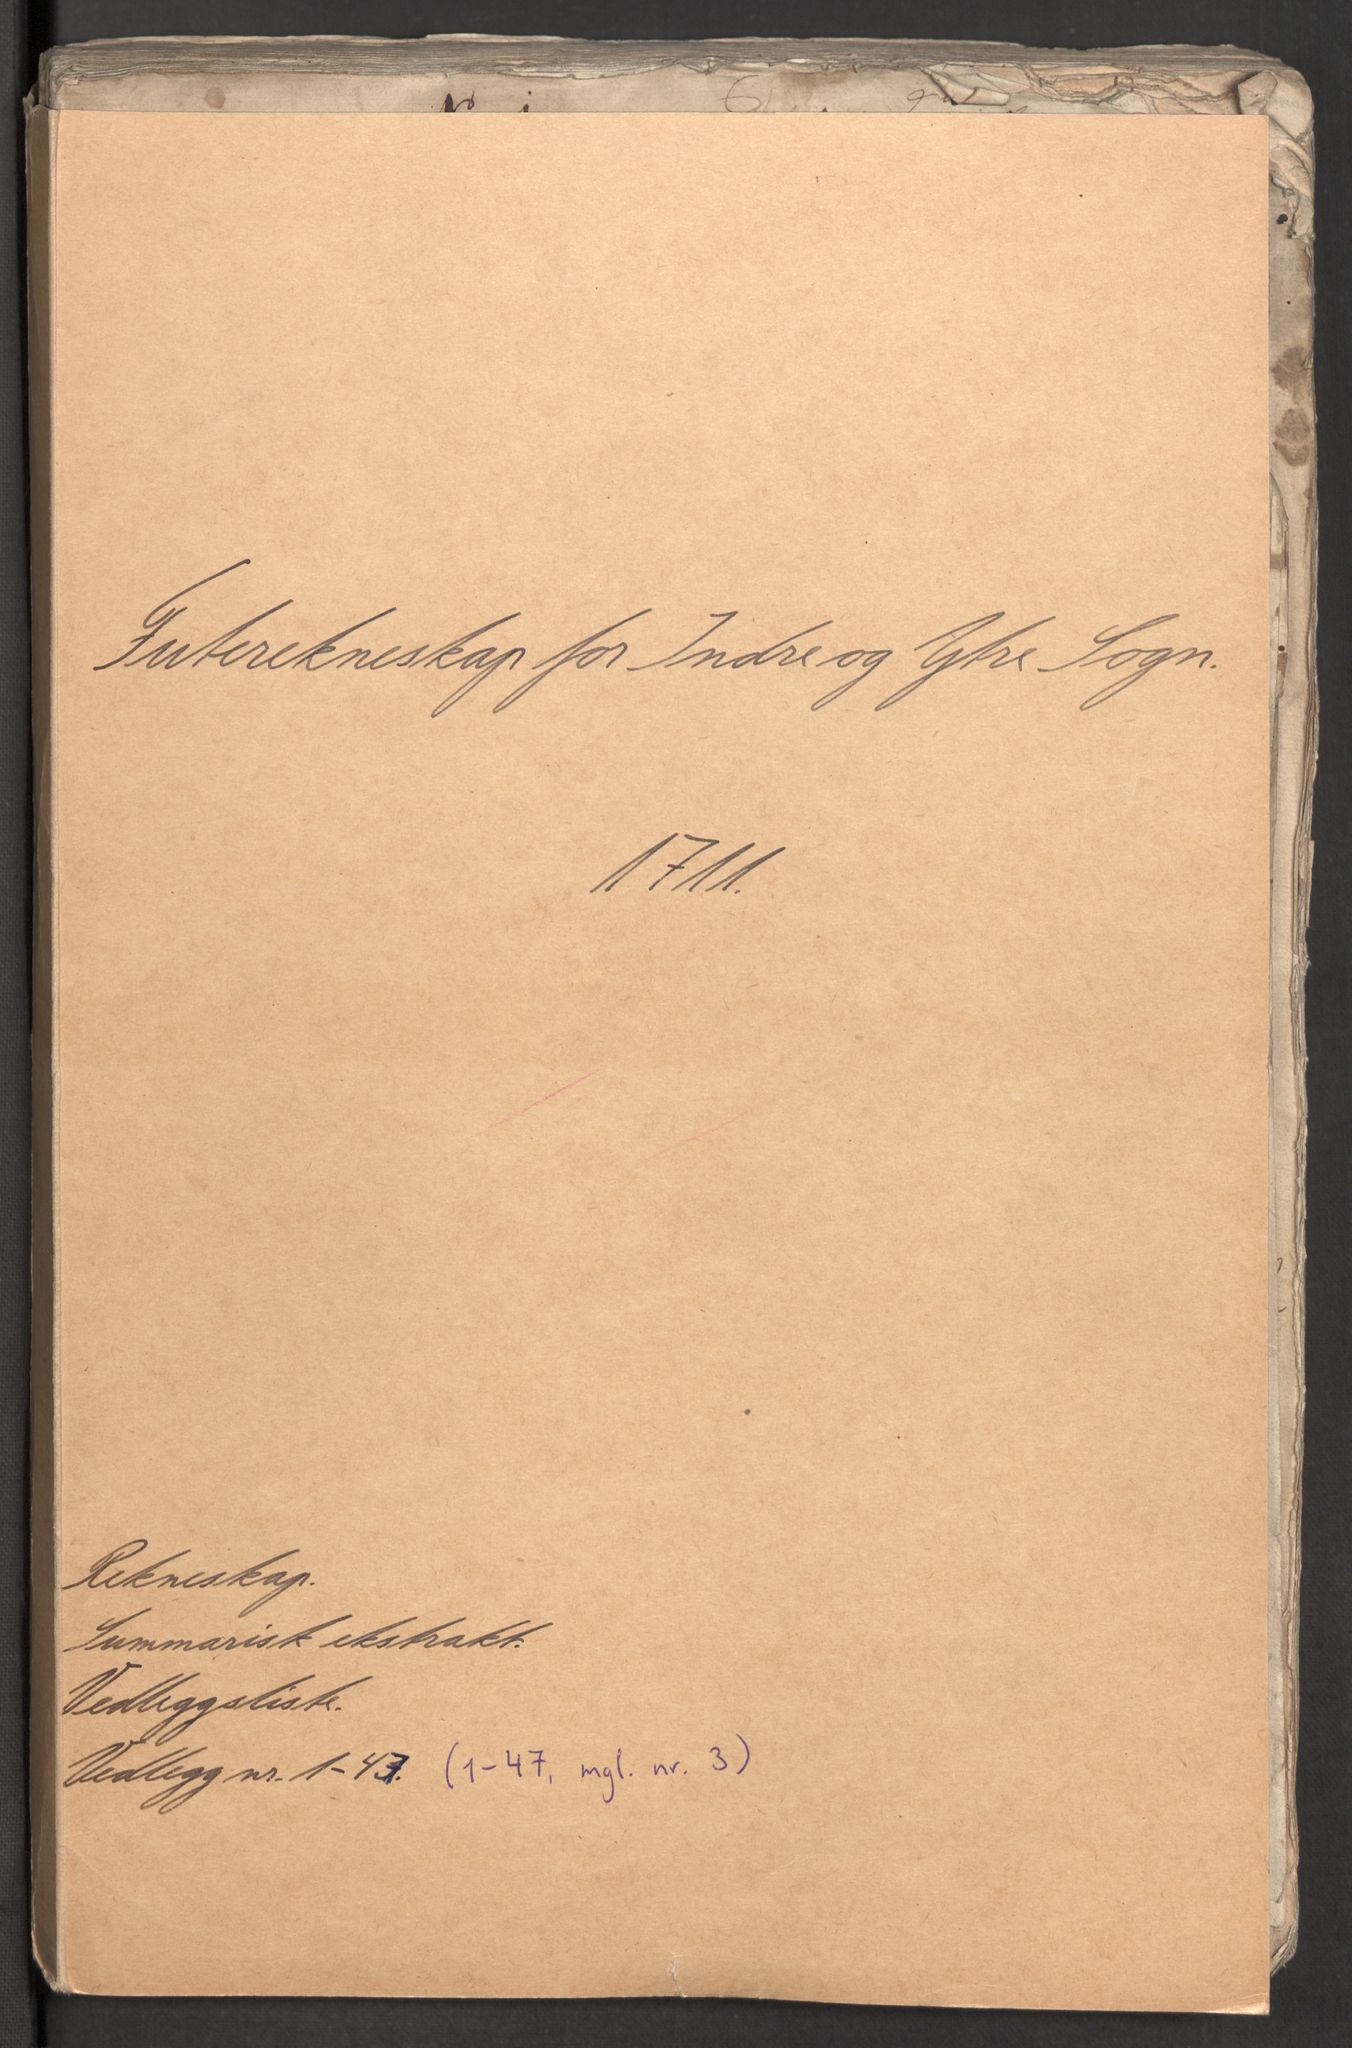 Futerekneskap for Indre og Ytre Sogn.
1711.
Rekneskap.
Summarisk ekstrakt.
Vedleggsliste.
Vedlegg nr. 1-47. (1-47, mgl. nr. 3)